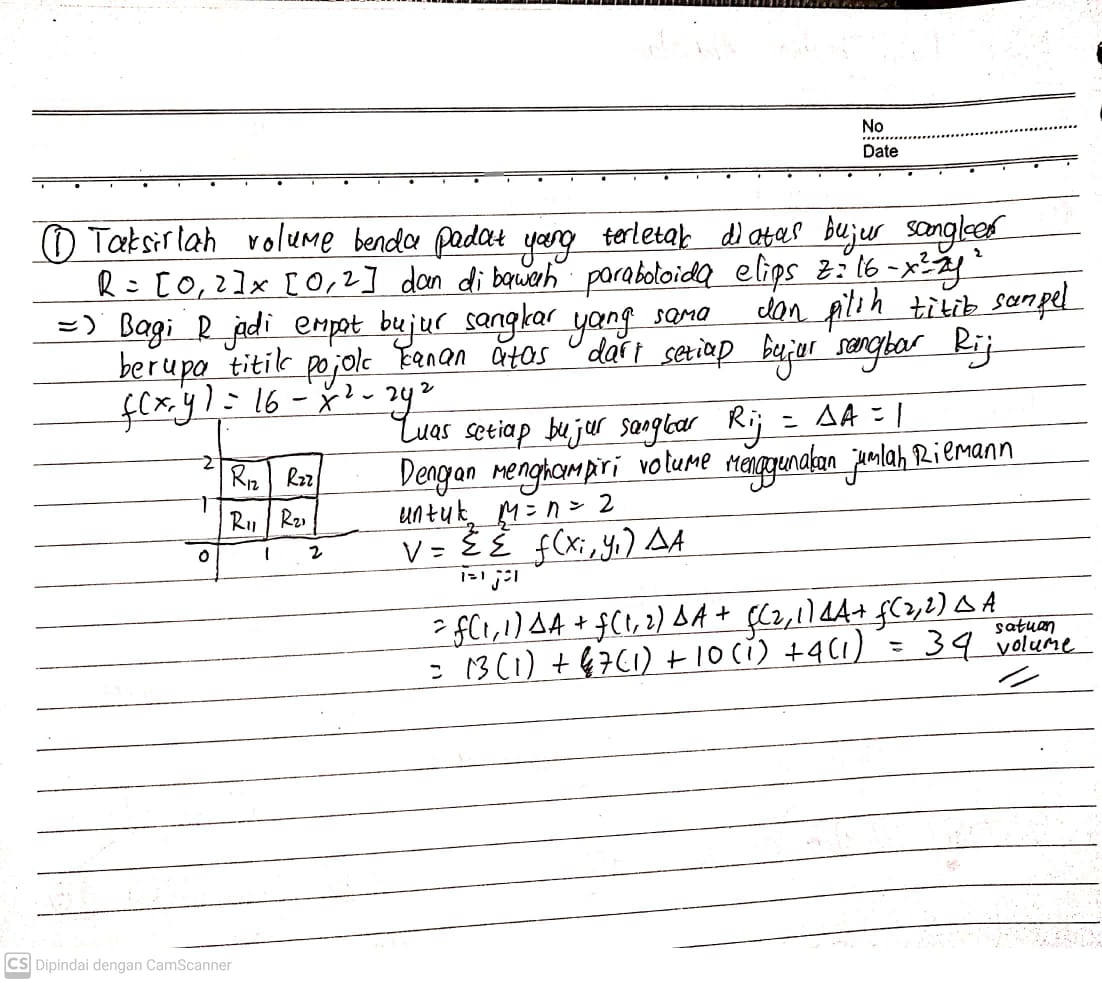 No
Date
① Taksirlah volume benda padat yang terletak di atas bujur sangkar
R = [0,2] x [0,2] dan di bawah paraboloida elips z = 16 - x² - 2y²
=> Bagi R jadi empat bujur sangkar yang sama dan pilih titik sampel
berupa titik pojok kanan atas dari setiap bujur sangkar Rij
f(x,y) = 16 - x² - 2y²
Luas setiap bujur sangkar Rij = ΔA = 1
2 R12 R22
Dengan menghampiri volume menggunakan jumlah Riemann
1 R11 R21
untuk M = n = 2
0 1 2
V = 2Σi=1 2Σj=1 f(xi, yi) ΔA
= f(1,1) ΔA + f(1,2) ΔA + f(2,1) ΔA + f(2,2) ΔA
= 13(1) + 7(1) + 10(1) + 4(1) = 34 satuan volume
CS Dipindai dengan CamScanner